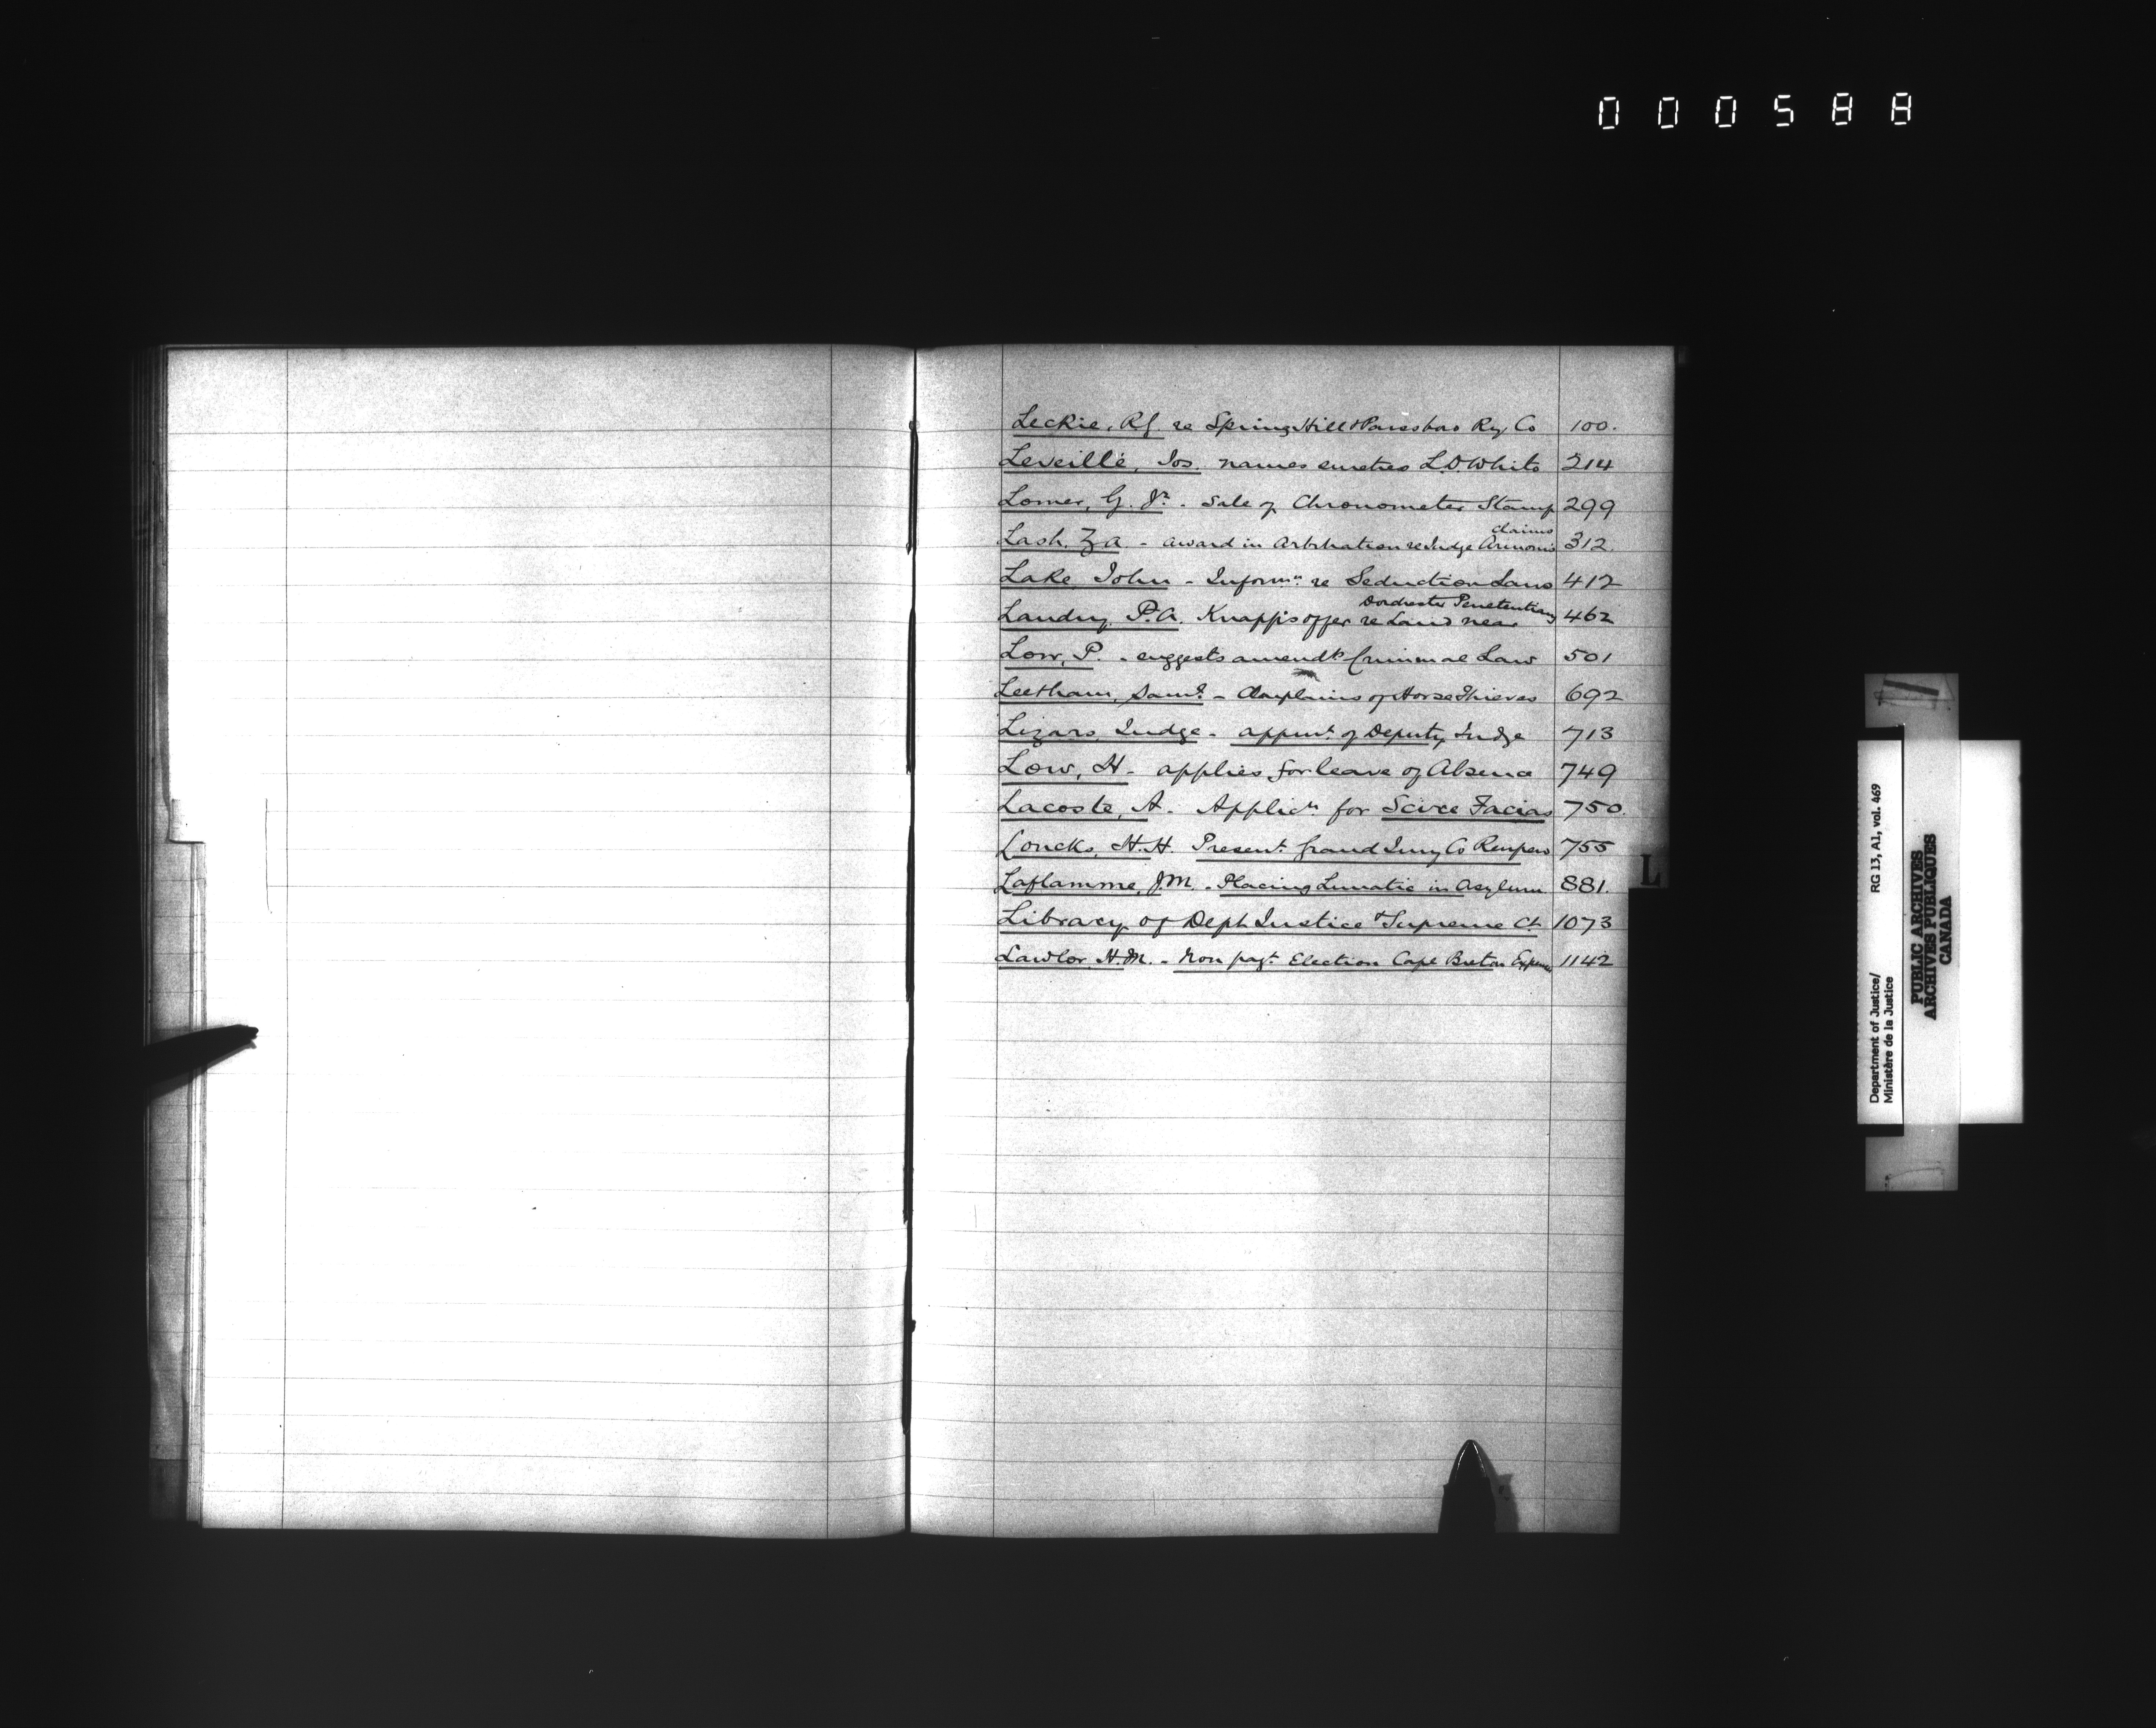 000588
Leckie, R.G. re Spring Hill & Parrsboro Ry Co 100.
Leveillé, Jos. names L.D. White 214
Lomer, G. Jr. - Sale of Chronometer Stamp 299
claims
Lash, Z.A. - award in Arbitration re Judge 312
Lake, John - Informn. re Seduction Laws 412
Dorchester Penetentiary
Landry, P.A. Knapp's offer re Land near 462
Low, P. - suggests amendt. Criminal Law 501
Leetham, Saml. - Complains of Horse Thieves 692
Lizars, Judge - appmt. of Deputy Judge 713
Low, H - applies for leave of Absence 749
Lacoste, A. Applicn. for Scire Facias 750.
Loucks, H.H. Present. Grand Jury Co Renfrew 755
Laflamme, J.M. - Placing Lunatic in Asylum 881.
Library of Dept Justice & Supreme Ct 1073
Lawlor, H.M. - Non payt. Election Cape Breton Expenses 1142
L
Department of Justice/
Ministère de la Justice
RG 13, A1, vol. 469
PUBLIC ARCHIVES
ARCHIVES PUBLIQUES
CANADA